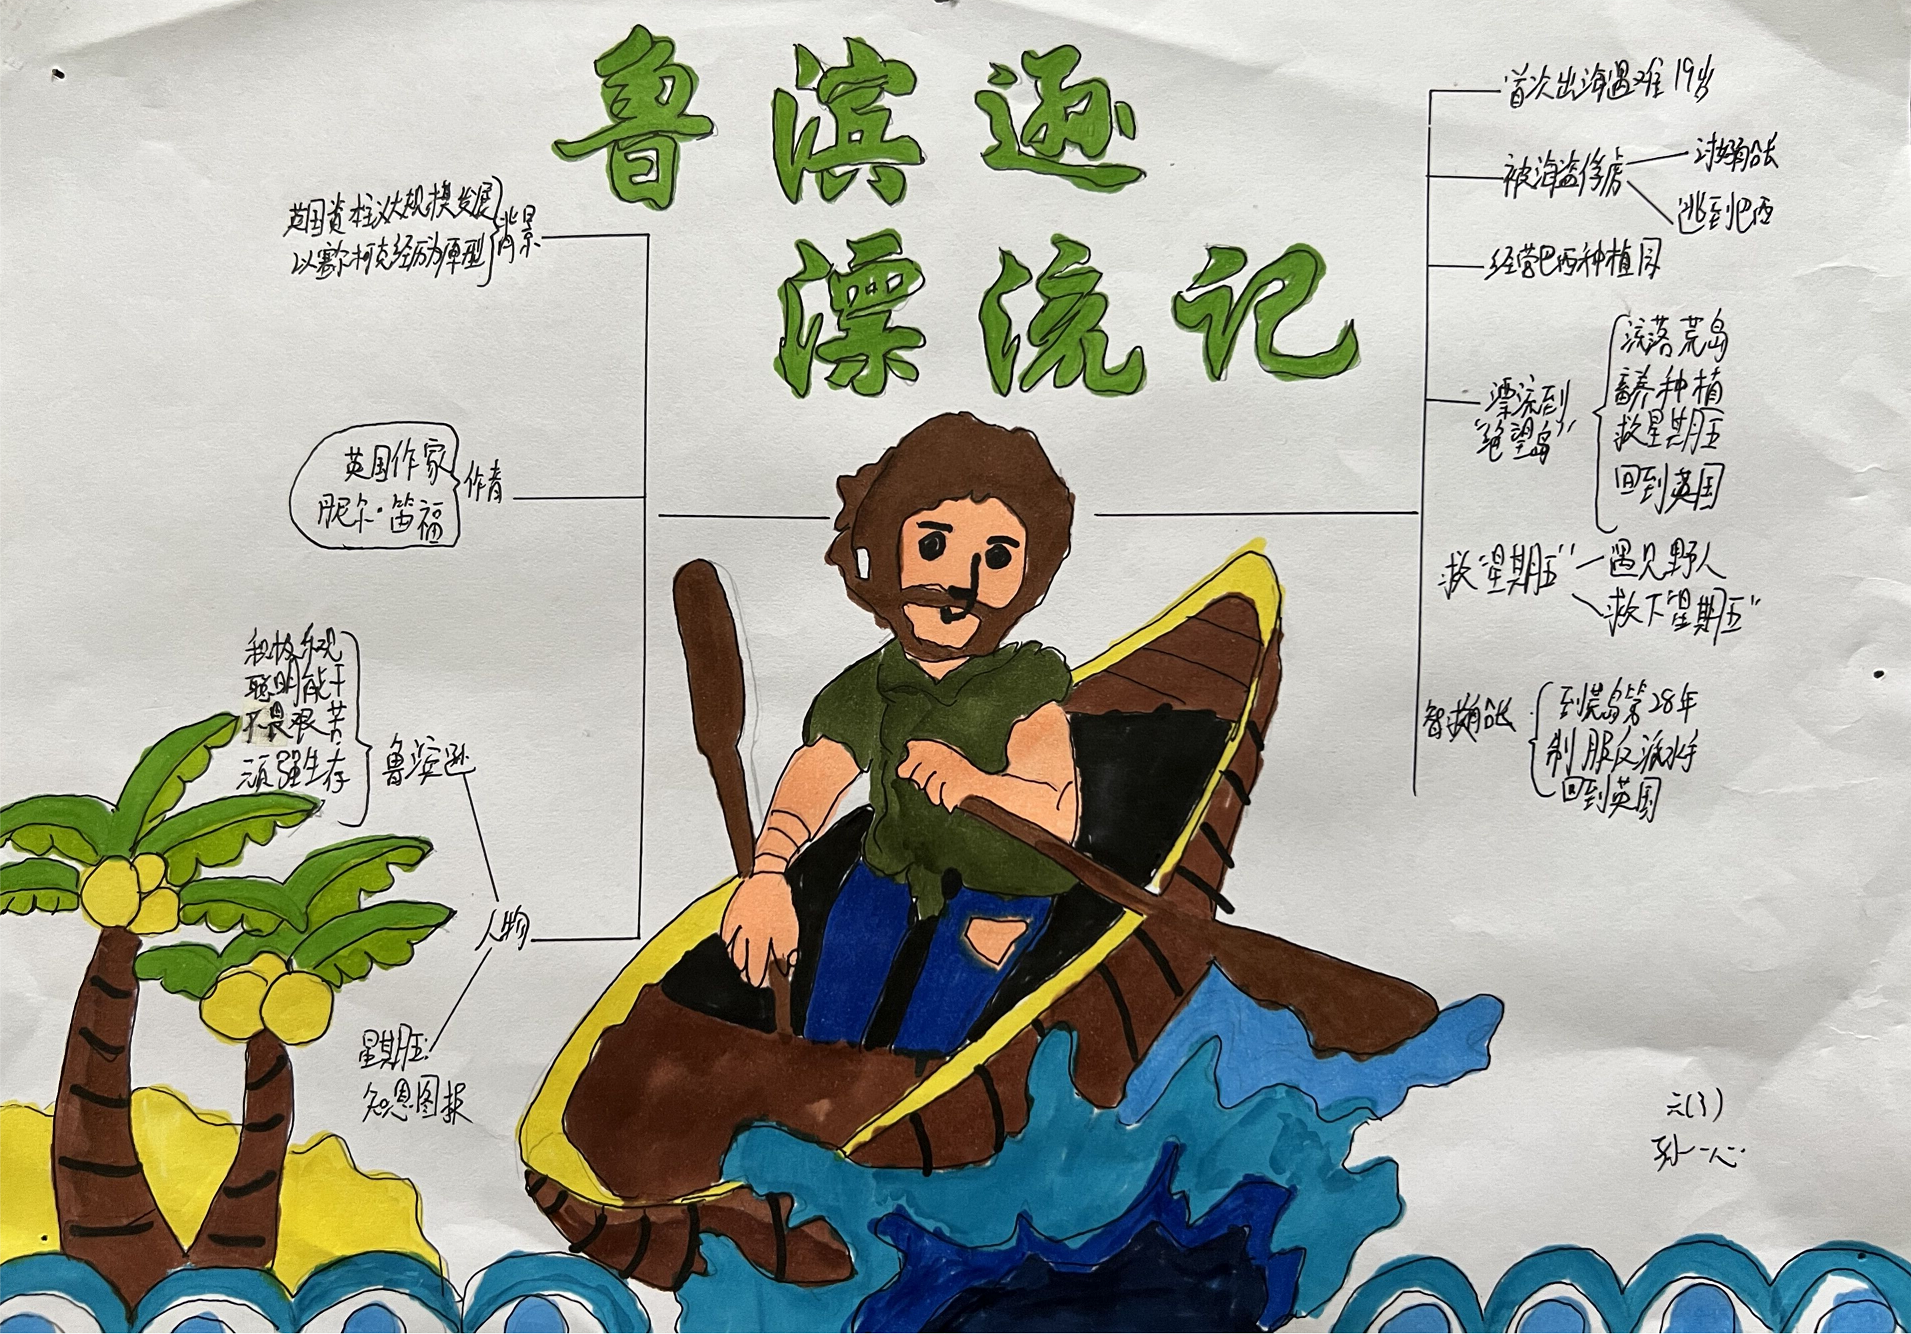 鲁滨逊
漂流记
英国资本主义大规模发展
以塞尔柯克经历为原型
背景
英国作家
丹尼尔·笛福
作者
积极乐观
聪明能干
不畏艰苦
顽强生存
鲁滨逊
人物
星期五:
知恩图报
首次出海遇难 19岁
被海盗俘虏
讨好船长
逃到巴西
经营巴西种植园
漂流到
"绝望岛"
流落荒岛
畜养种植
救星期五
回到英国
救"星期五"
遇见野人
救下"星期五"
智救船长
到荒岛第28年
制服反派水手
回到英国
六(3)
孙一心